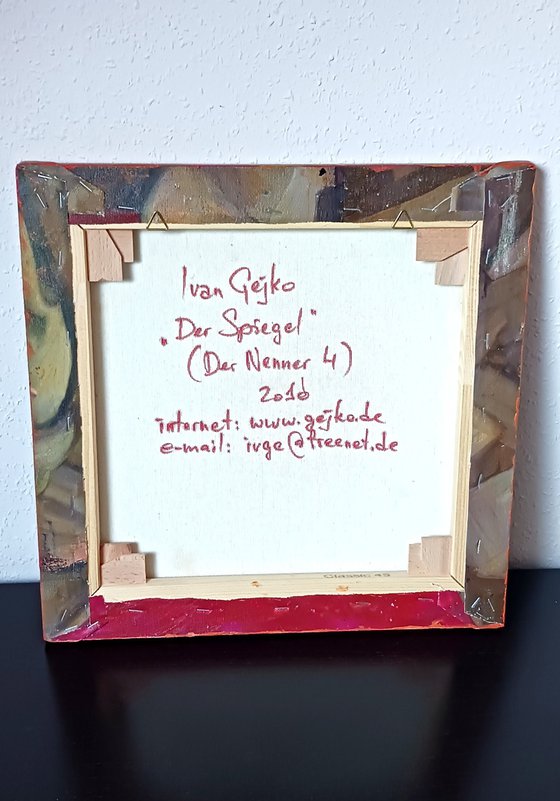 Ivan Gejko
„Der Spiegel"
(Der Nenner 4)
2016
internet: www.gejko.de
e-mail: ivge@freenet.de
Classic 45